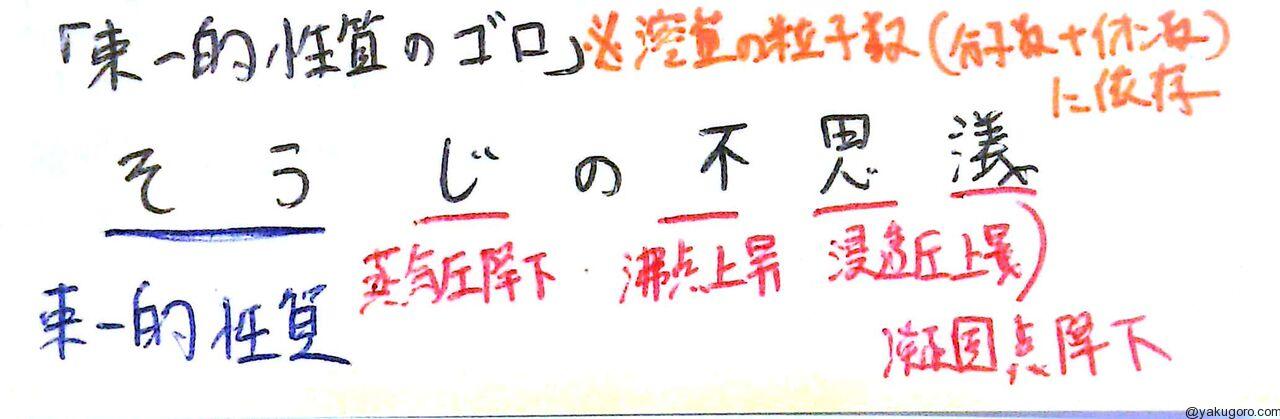 「束一的性質のゴロ」※溶質の粒子数(分子数+イオン数)
に依存
そうじの不思議
蒸気圧降下 沸点上昇 浸透圧上昇)
束一的性質
凝固点降下
@yakugoro.com